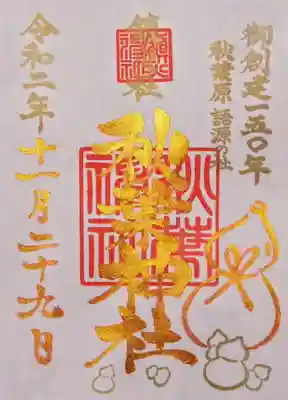 御創建一五〇年
秋葉原 語源の社
秋葉神社
令和二年十一月二十九日